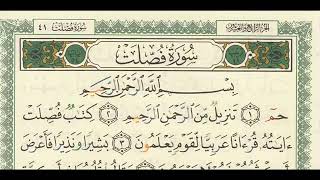 سُورَةُ فُصِّلَتْ ٤١
سُورَةُ فُصِّلَتْ
بِسْمِ ٱللَّهِ ٱلرَّحْمَٰنِ ٱلرَّحِيمِ
حمٓ ١ تَنزِيلٌ مِّنَ ٱلرَّحْمَٰنِ ٱلرَّحِيمِ ٢ كِتَٰبٌ فُصِّلَتْ
ءَايَٰتُهُۥ قُرْءَانًا عَرَبِيًّا لِّقَوْمٍ يَعْلَمُونَ ٣ بَشِيرًا وَنَذِيرًا فَأَعْرَضَ